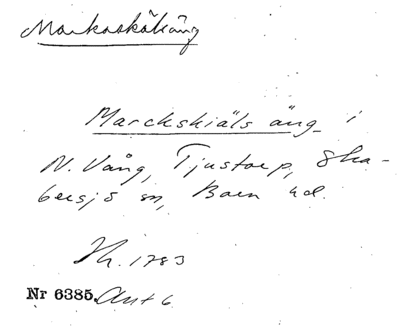 Markaskälsäng
Marckskiäls äng i
N. Vång, Tjustorp, Ska-
bersjö sn, Bara hd.
Nr 6385. Akt 6